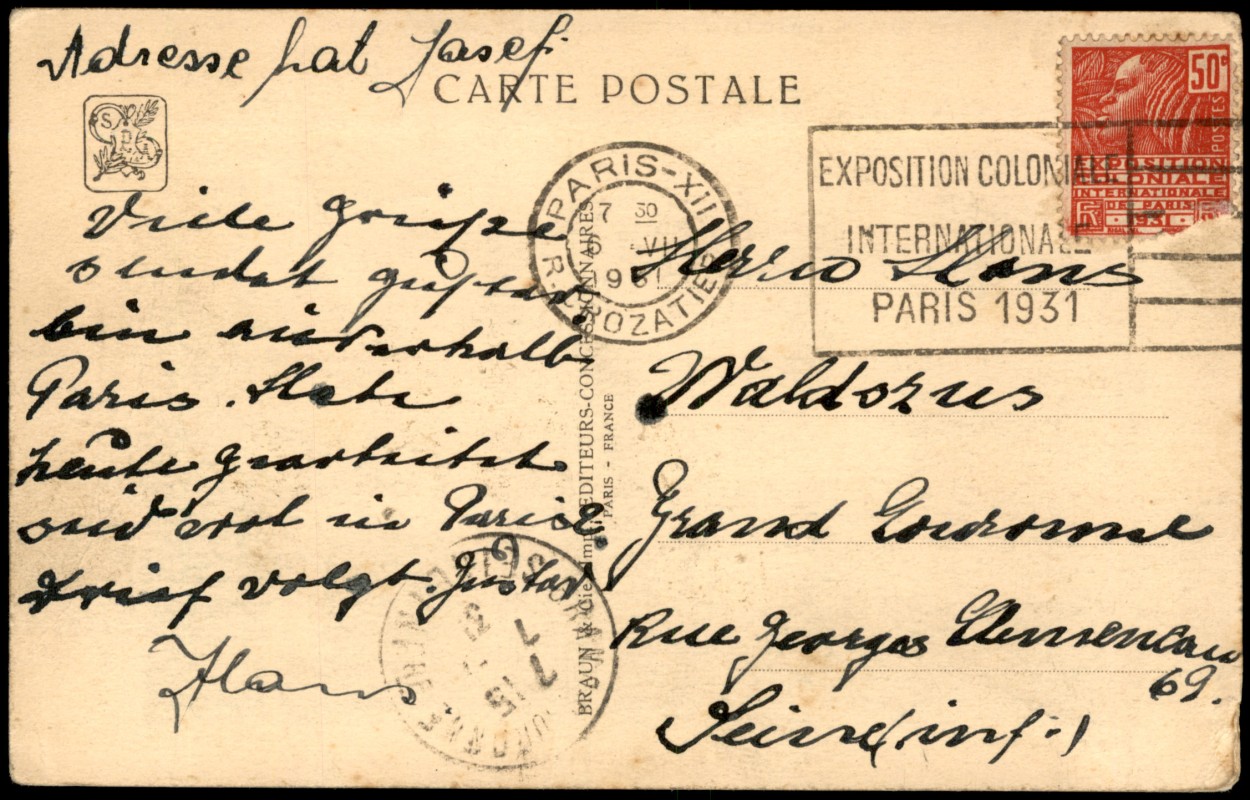 Adresse hat Josef.
CARTE POSTALE
Viele Grüße
sendet Gustav
bin außerhalb
Paris. Habe
heute gearbeitet
sind erst in Paris
Brief volgt. Gustav
Hans
PARIS-XII
7 30
VII
R. CROZATIER
EXPOSITION COLONIALE
INTERNATIONALE
PARIS 1931
50c
POSTES
EXPOSITION
COLONIALE
INTERNATIONALE
DE PARIS
1931
BRAUN & Cie Imp. EDITEURS-CONCESSIONNAIRES
PARIS - FRANCE
Herrn Hans
Waldorus
Grand Couronne
Rue Georges Clemenceau
69.
Seine (inf.)